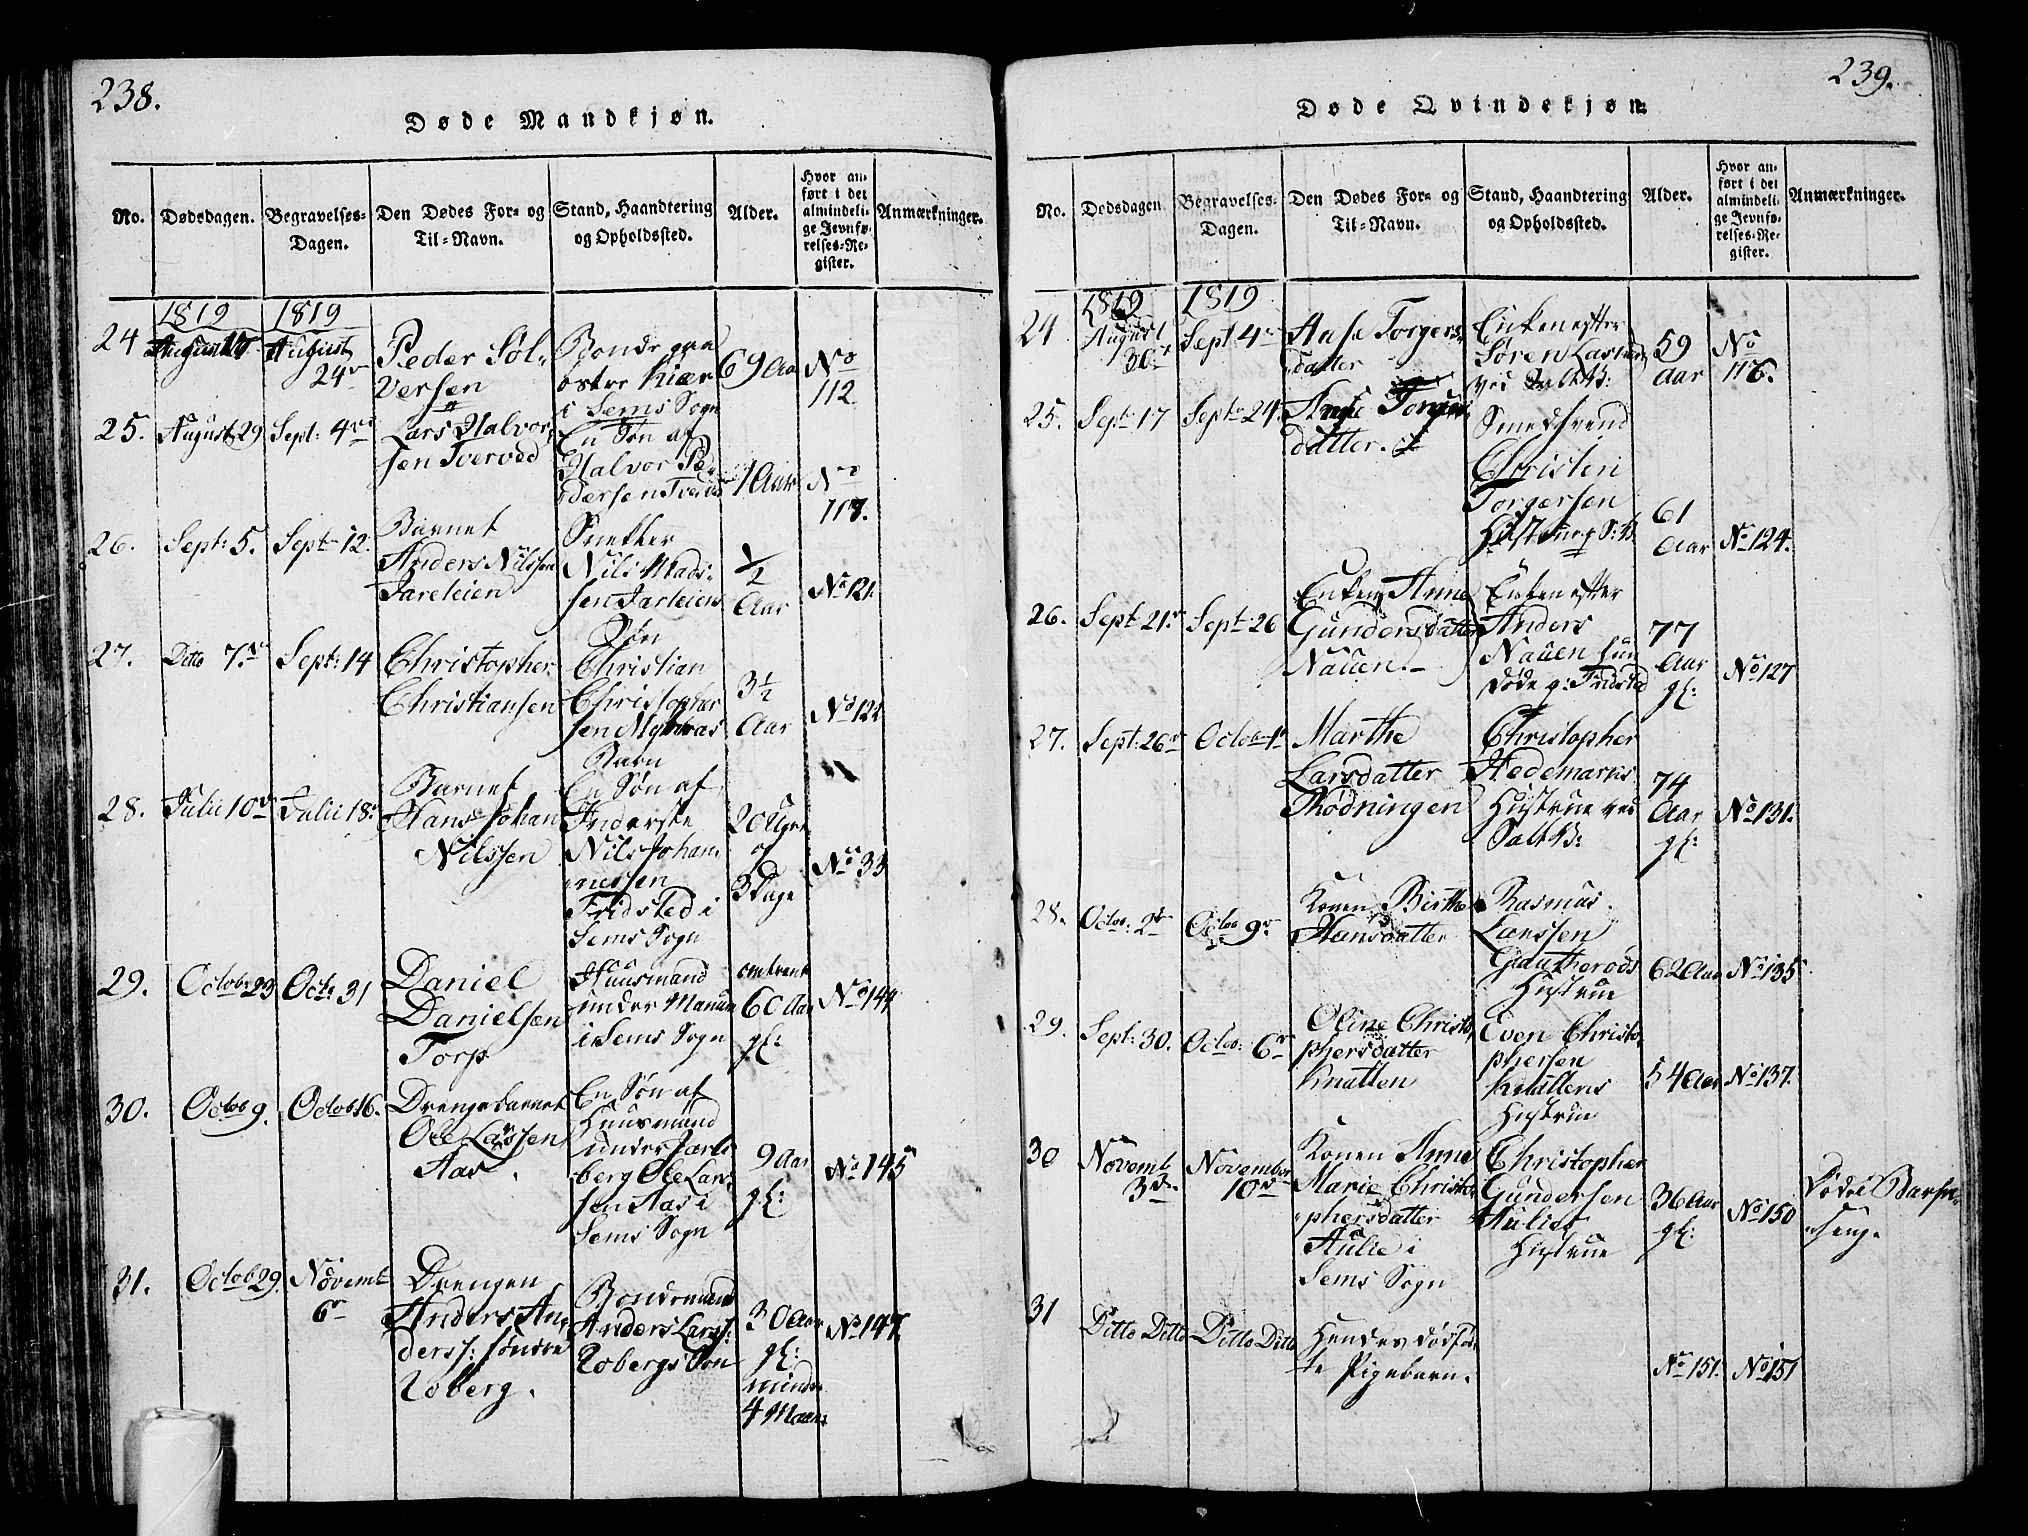 238.
Døde Mandkjøn.
No.
Dødsdagen.
Begravelses-
Dagen.
Den Dødes For- og
Til-Navn.
Stand, Haandtering
og Opholdssted.
Alder.
Hvor an-
ført i det
almindeli-
ge Jevnfø-
relses-Re-
gister.
Anmærkninger.
1819
1819
24
August
August
24
Peder Søl-
versen
Bonde paa
østre Kiær
i Sems Sogn
69 Aar
No
112
25.
August 29
Sept: 4
Lars Halvor-
sen Tverved
En Søn af
Halvor Pe-
dersen
1 Aar
No
26.
Sept: 5.
Sept 12.
Barnet
Anders Nilssen
Jareleien
Snekker
Nils Mads-
sen Jarleiens
Søn
½
Aar
No 121.
27.
Ditto 7
Sept: 14
Christopher
Christiansen
Christian
Christopher
sen
Barn
3½
Aar
No 122
28.
Julii 10
Julii 18
Barnet
Hans Johan
Nilssen
En Søn af
Nils Johan-
nessen
Fridsted i
Sems Sogn
20 Uger
og
3 Dage
No 33
29.
Octob 23
Oct: 31
Daniel
Danielsen
Torp
Huusmand
under
i Sems Sogn
omtrent
60 Aar
gl:
No 144
30.
Octob 9.
Octob 16.
Drengebarnet
Ole Larssen
Aas.
En Søn af
Huusmand
under Jarls-
berg Ole Lars-
sen Aas i
Sems Sogn
9 Aar
gl:
No 145
31.
Octob 29.
Novemb
6
Drengen
Anders An-
derss: søndre
Roberg.
Bondemand
Anders Larss:
Robergs Søn
30 Aar
gl:
mindre
4 Maan:
No 147.
239.
Døde Qvindekjøn.
No.
Dødsdagen.
Begravelses-
Dagen.
Den Dødes For- og
Til-Navn.
Stand, Haandtering
og Opholdssted.
Alder.
Hvor an-
ført i det
almindeli-
ge Jevnfø-
relses-Re-
gister.
Anmærkninger.
1819
1819
24
August
30
Sept 4
Aase Torgers-
datter
Enken efter
Søren
ved Salt B:
59
Aar
No
116.
25.
Sept: 17
Sept: 24.
datter.
Smedsvend
Christen
Torgersen
61
Aar
No 124.
26.
Sept 21
Sept: 26
Enken Anne
Gundersdatter
Nauen.
Enken efter
Anders
Nauen hun
døde p: Fridsted
77
Aar
gl:
No 127
27.
Sept: 26
Octob 1
Marthe
Larsdatter
Rødningen
Christopher
Hedemarks
Hustrue ved
Salt B:
74
Aar
gl:
No 131.
28.
Octob: 2
Octob 9
Konen Birthe
Hansdatter
Rasmus
Larssen
Gautherods
Hustrue
62 Aar
No 135
29.
Sept: 30.
Octob: 6
Oline Christo-
phersdatter
Knatten
Even Christo-
phersen
Knattens
Hustrue
54 Aar
No 137.
30
Novemb
3
November
10
Konen Anne
Marie Christo-
phersdatter
Aulie i
Sems Sogn
Christopher
Gundersen
Aulies
Hustrue
36 Aar
gl:
No 150
Døde i Barsel-
seng.
31
Ditto Ditto
Ditto Ditto
Hendes dødfød-
te Pigebarn.
No 151.
No 151